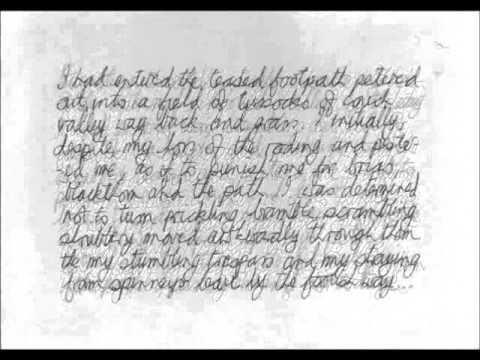 I had entered the teased footpath petered
out into a field of tussocks of couch
valley lay back and grass. initially,
despite my of the and
ed me, as if to punish me for briar,
blackthorn and the path I was determined
not to turn prickling bramble, scrambling
shrubbery moved through them
my stumbling trespass and my straying
from spinneys by the way...